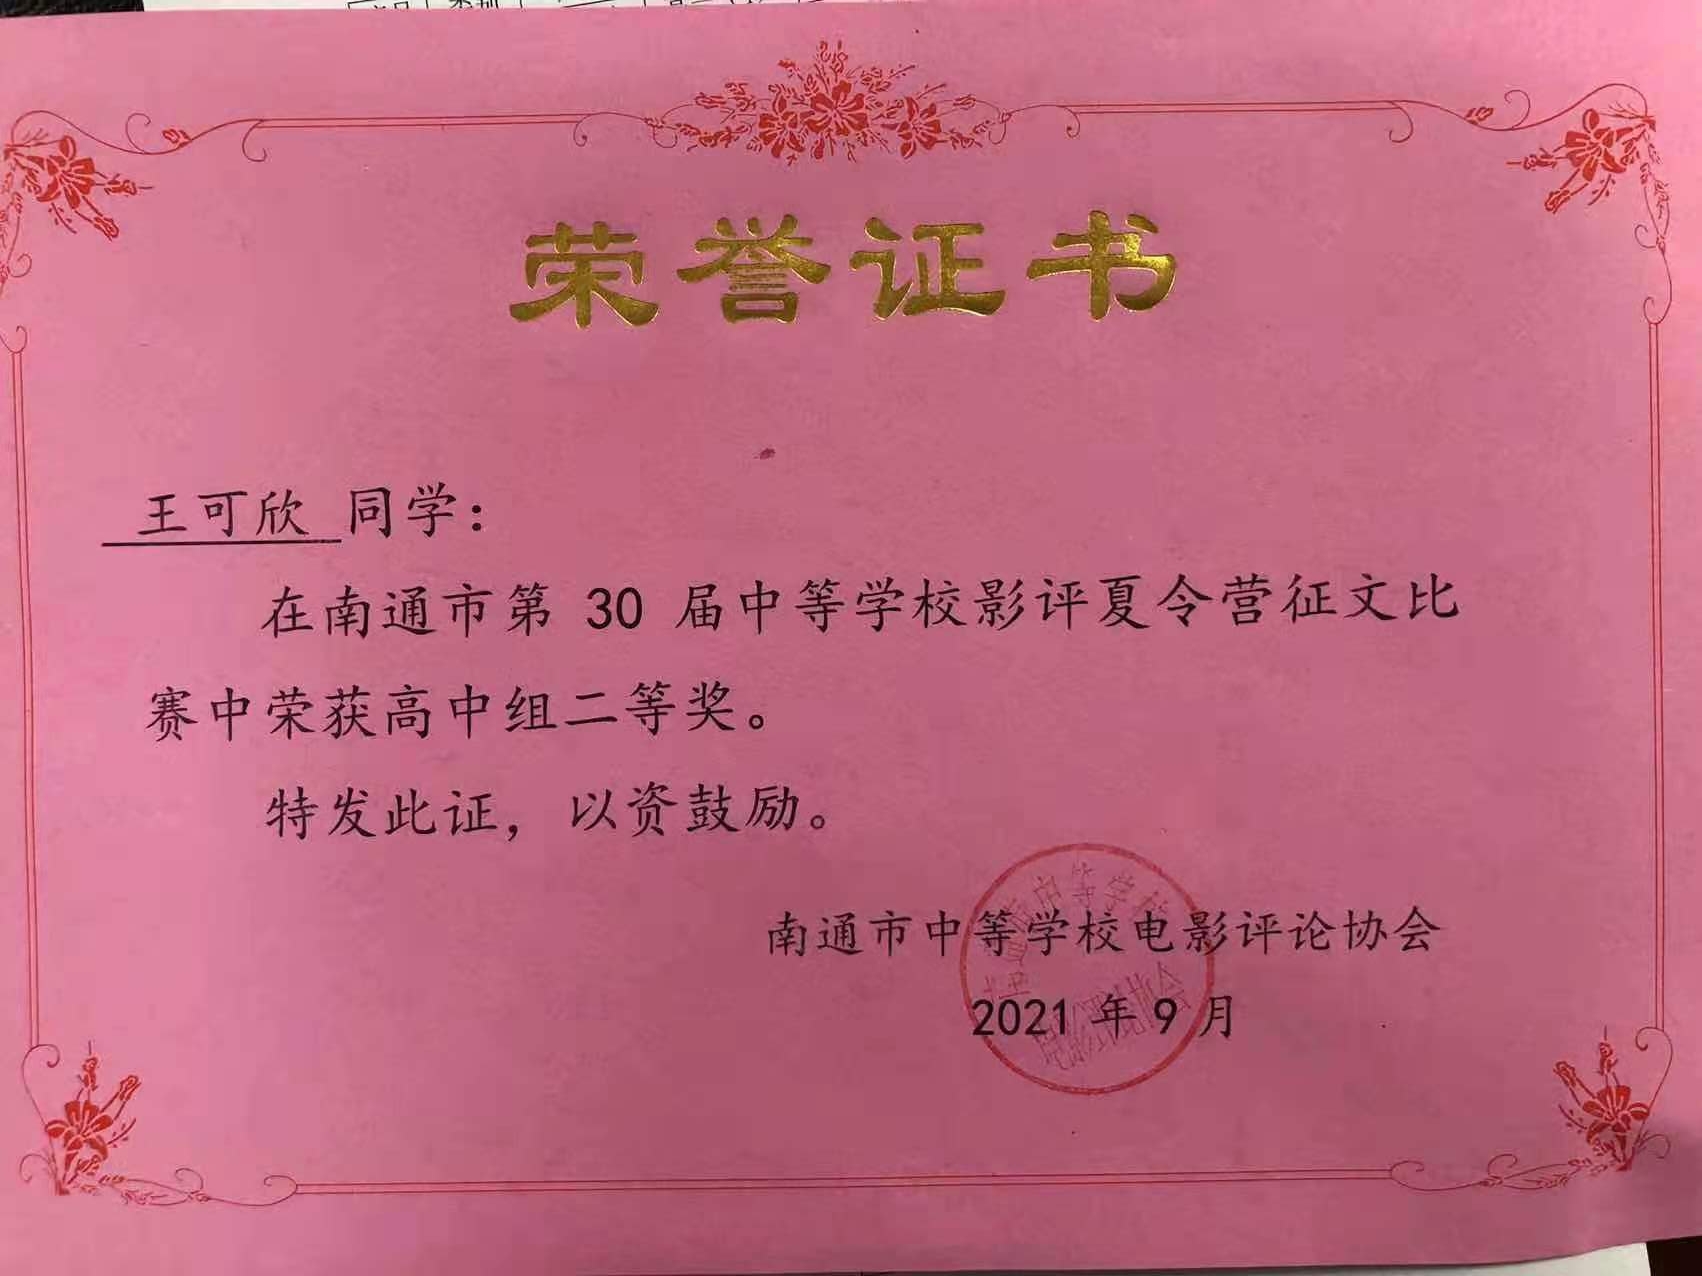 荣誉证书
王可欣 同学：
在南通市第 30 届中等学校影评夏令营征文比
赛中荣获高中组二等奖。
特发此证，以资鼓励。
南通市中等学校电影评论协会
2021 年 9 月